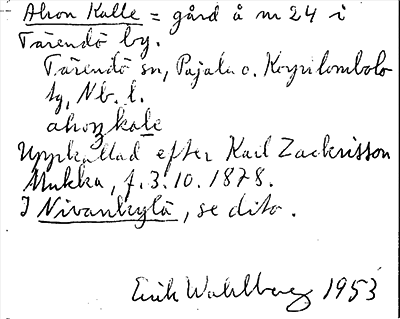 Ahon Kalle = gård å nr 24 i
Tärendö by.
Tärendö sn, Pajala o. Korpilombolo
tg, Nb. l.
ahoŋ kalle
Uppkallad efter Karl Zackrisson
Mukka, f. 3.10.1878.
I Nivankylä, se dito.
Erik Wahlberg 1953